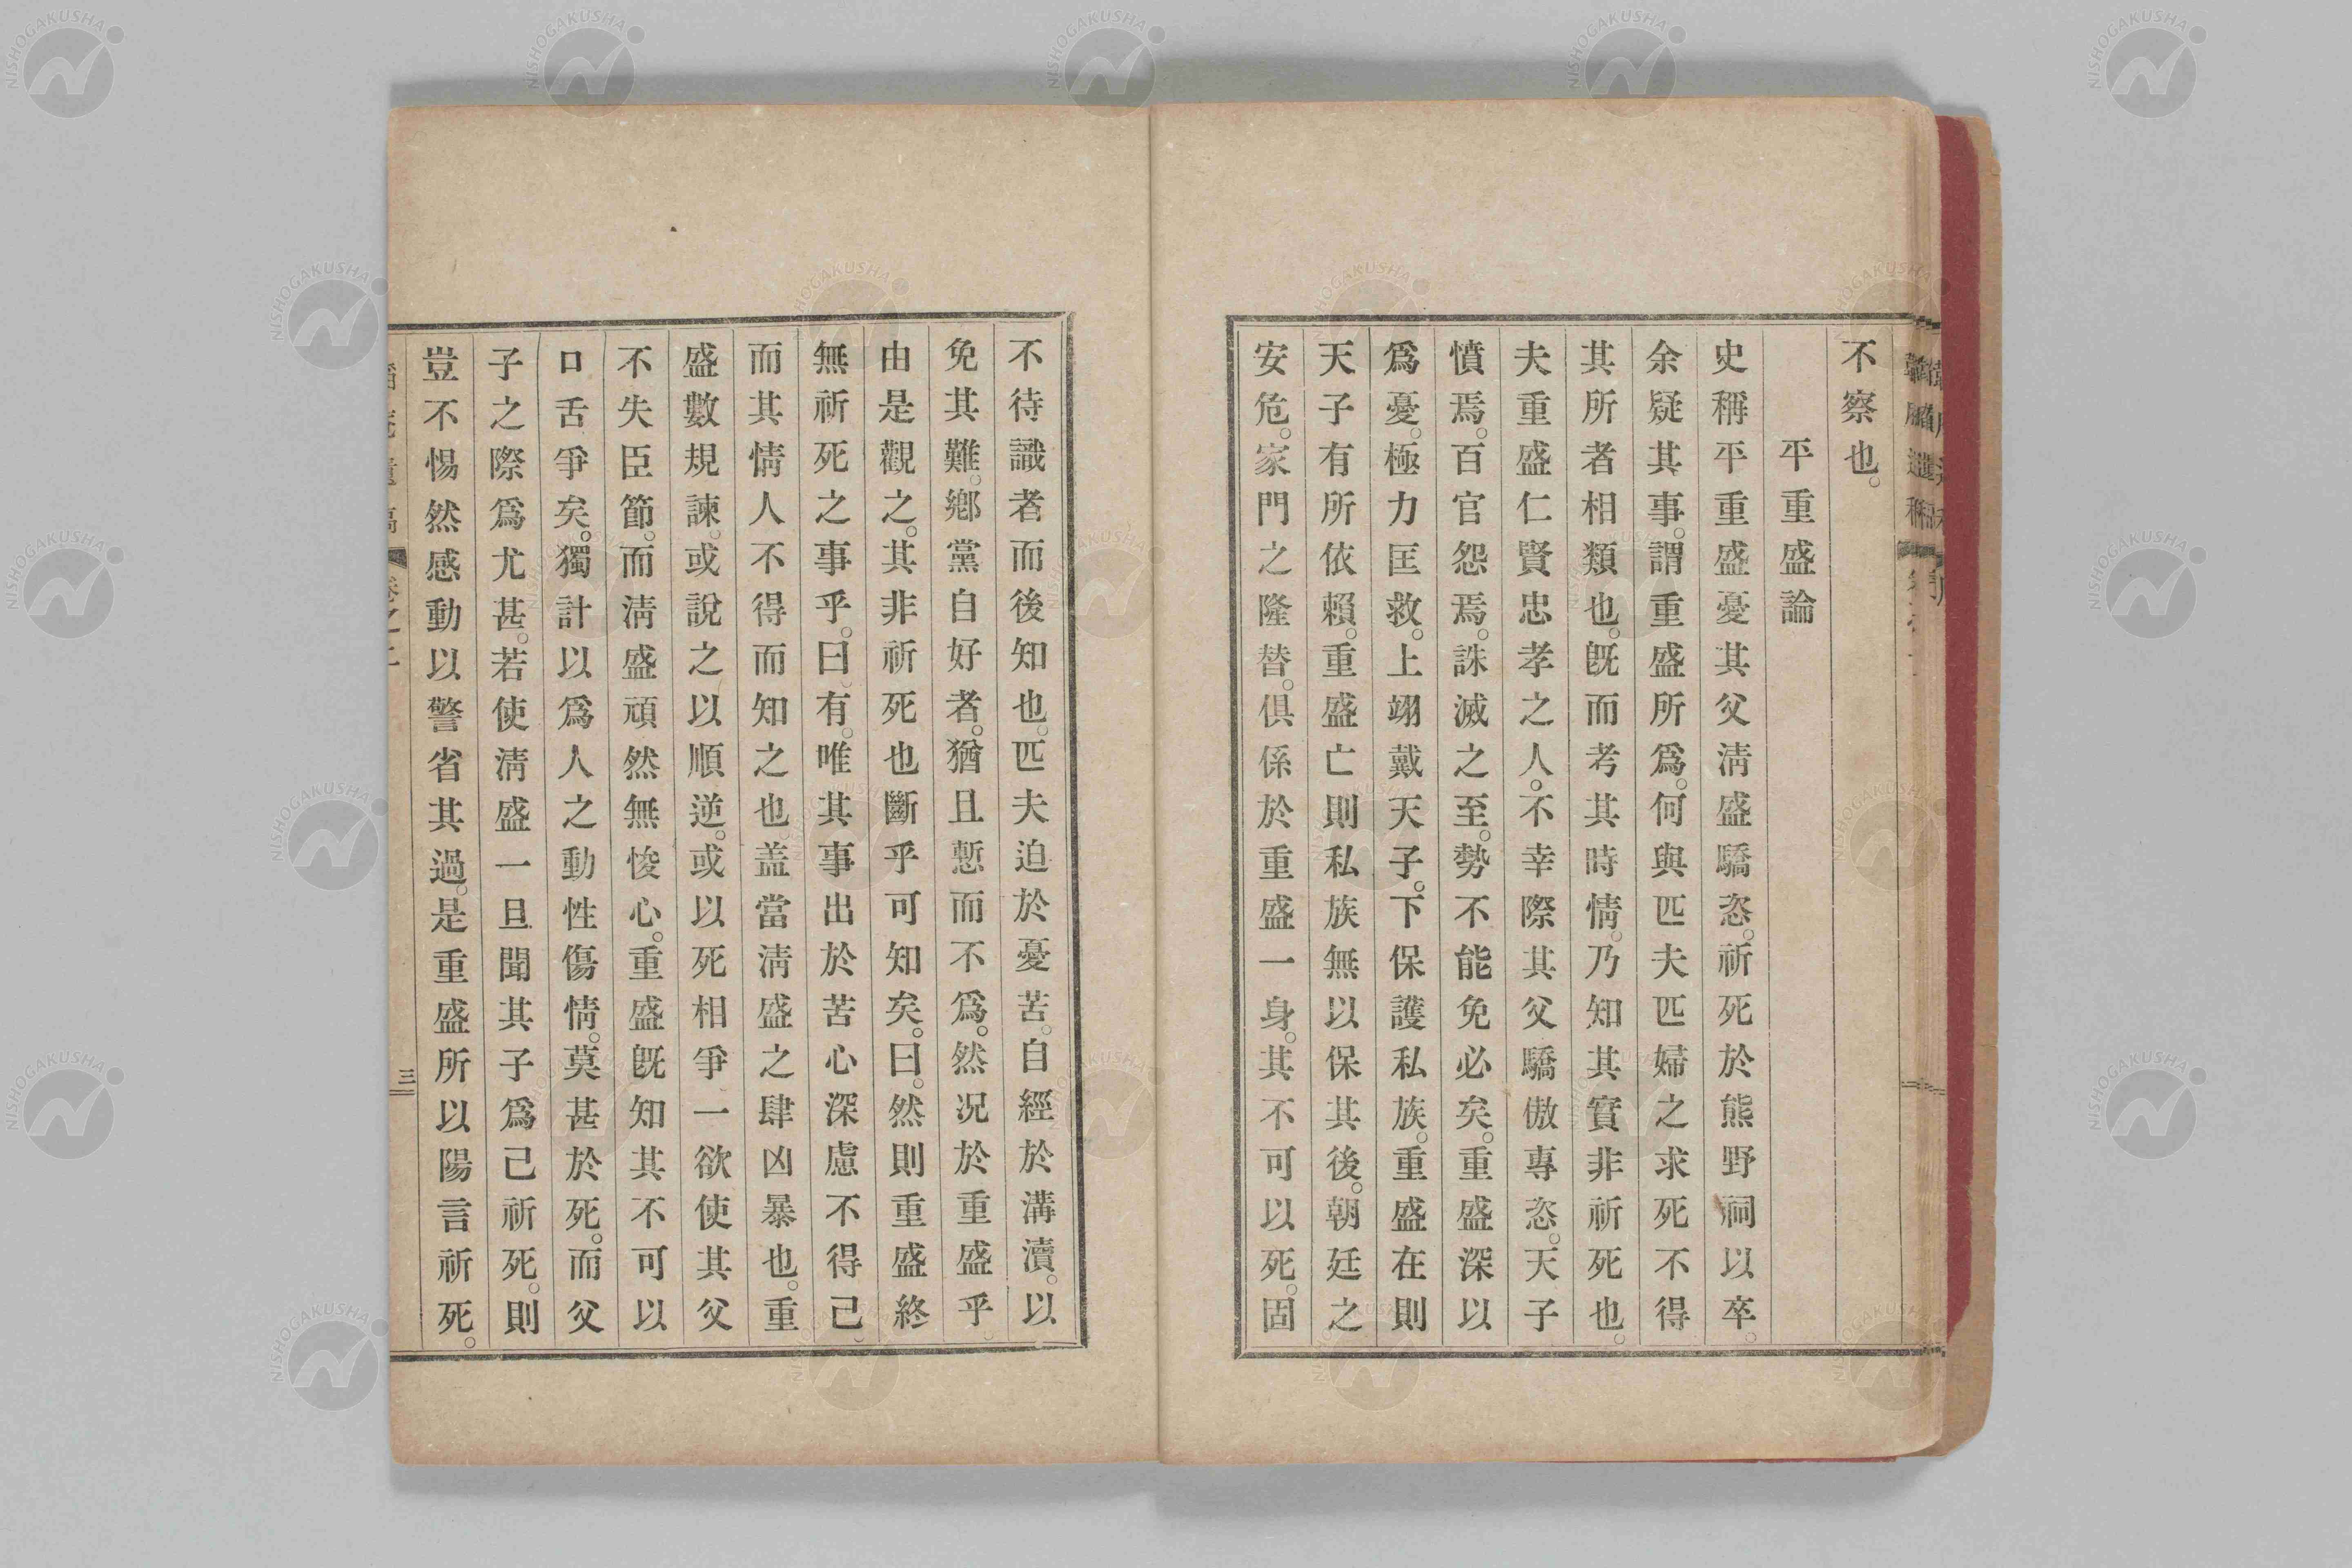 不察也。
平重盛論
史稱平重盛憂其父淸盛驕恣。祈死於熊野祠以卒。
余疑其事。謂重盛所爲。何與匹夫匹婦之求死不得
其所者相類也。既而考其時情。乃知其實非祈死也。
夫重盛仁賢忠孝之人。不幸際其父驕傲專恣。天子
憤焉。百官怨焉。誅滅之至。勢不能免必矣。重盛深以
爲憂。極力匡救。上翊戴天子。下保護私族。重盛在則
天子有所依賴。重盛亡則私族無以保其後。朝廷之
安危。家門之隆替。俱係於重盛一身。其不可以死。固
不待識者而後知也。匹夫迫於憂苦。自經於溝瀆。以
免其難。鄕黨自好者。猶且慙而不爲。然况於重盛乎
由是觀之。其非祈死也斷乎可知矣。曰。然則重盛終
無祈死之事乎。曰有。唯其事出於苦心深慮不得已
而其情人不得而知之也盖當淸盛之肆凶暴也。重
盛數規諫。或說之以順逆。或以死相爭一欲使其父
不失臣節。而淸盛頑然無悛心。重盛既知其不可以
口舌爭矣。獨計以爲人之動性傷情。莫甚於死。而父
子之際爲尤甚。若使淸盛一旦聞其子爲己祈死。則
豈不惕然感動以警省其過。是重盛所以陽言祈死。
三